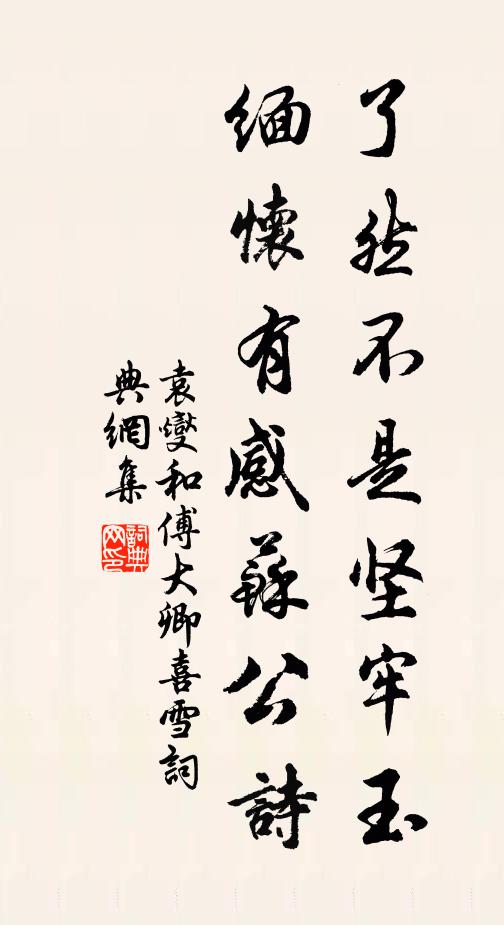 了然不是坚牢玉
缅懷有感蘇公詩
袁燮和傅大卿喜雪詞
典網集
詞典
网印